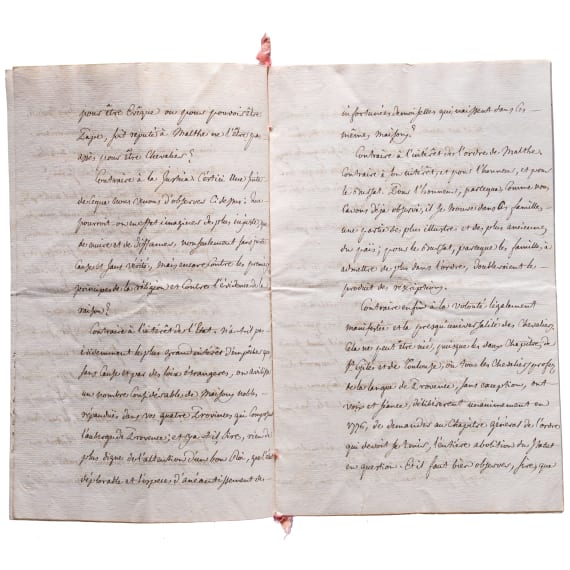 pour être Evêque ou pour pouvoir être
Pape, soit réputé à Malthe ne l'être pas
assés pour être Chevalier?
Contraire à la Justice. Cecy est une suite
de ce que nous venons d'observer Ci dessus: Que
pourroit on en effet imaginer de plus injuste, que
de nuire et de diffamer, non seulement sans
Cause et sans vérité, mais encore contre les premiers
principes de la religion et contre l'évidence de la
raison?
Contraire à l'intérêt de l'Etat. N'a-t-il pas
évidemment le plus grand intérêt d'empêcher que
sans Cause et par des loix étrangeres, on avilisse
un nombre Considérable de Maisons nobles
repandües dans vos quatre Provinces, qui composent
l'auberge de Provence; et y a-t-il Sire, rien de
plus digne de l'attention d'un bon Roi, que l'état
déplorable et l'espece d'aneantissement des
infortunées demoiselles qui naissent dans Ces
mêmes maisons?
Contraire à l'intérêt de l'ordre de Malthe.
Contraire à son intérêt, et pour l'honneur, et pour
le Bursal. Pour l'honneur, parceque, Comme nous
l'avons déjà observé, il se trouve dans Ces familles,
une partie des plus illustres et des plus anciennes
du païs; pour le Bursal, parceque les familles, à
admettre de plus dans l'ordre, doubleroient le
produit des réceptions.
Contraire enfin à la volonté légalement
manifestée et la presqu'universalité des Chevaliers.
Cela ne peut être nié, puisque les deux Chapitres de
St. Giles et de Toulouse, où tous les Chevaliers profes
de la langue de Provence, sans exception, ont
voix et séance, délibérerent unanimement en
1776, de demander au Chapitre général de l'ordre
qui devoit se tenir, l'entière abolition du Statut
en question. Et il faut bien observer, sire, que